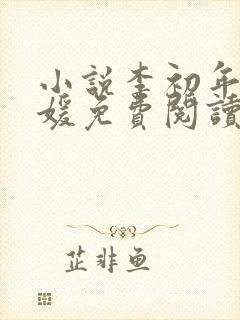 小說李初年
媛免費閱讀
芷非魚